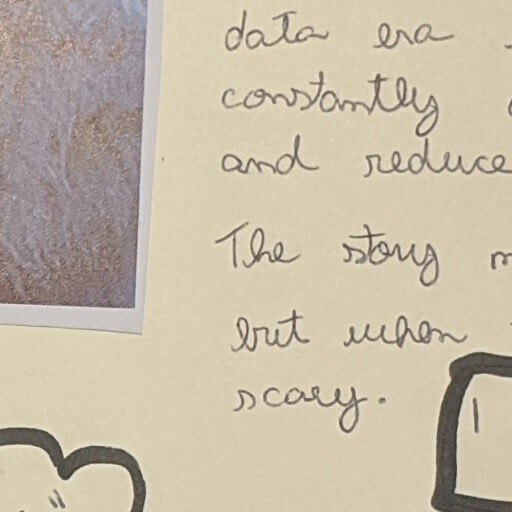 data era
constantly
and reduce
The story
but when
scary.